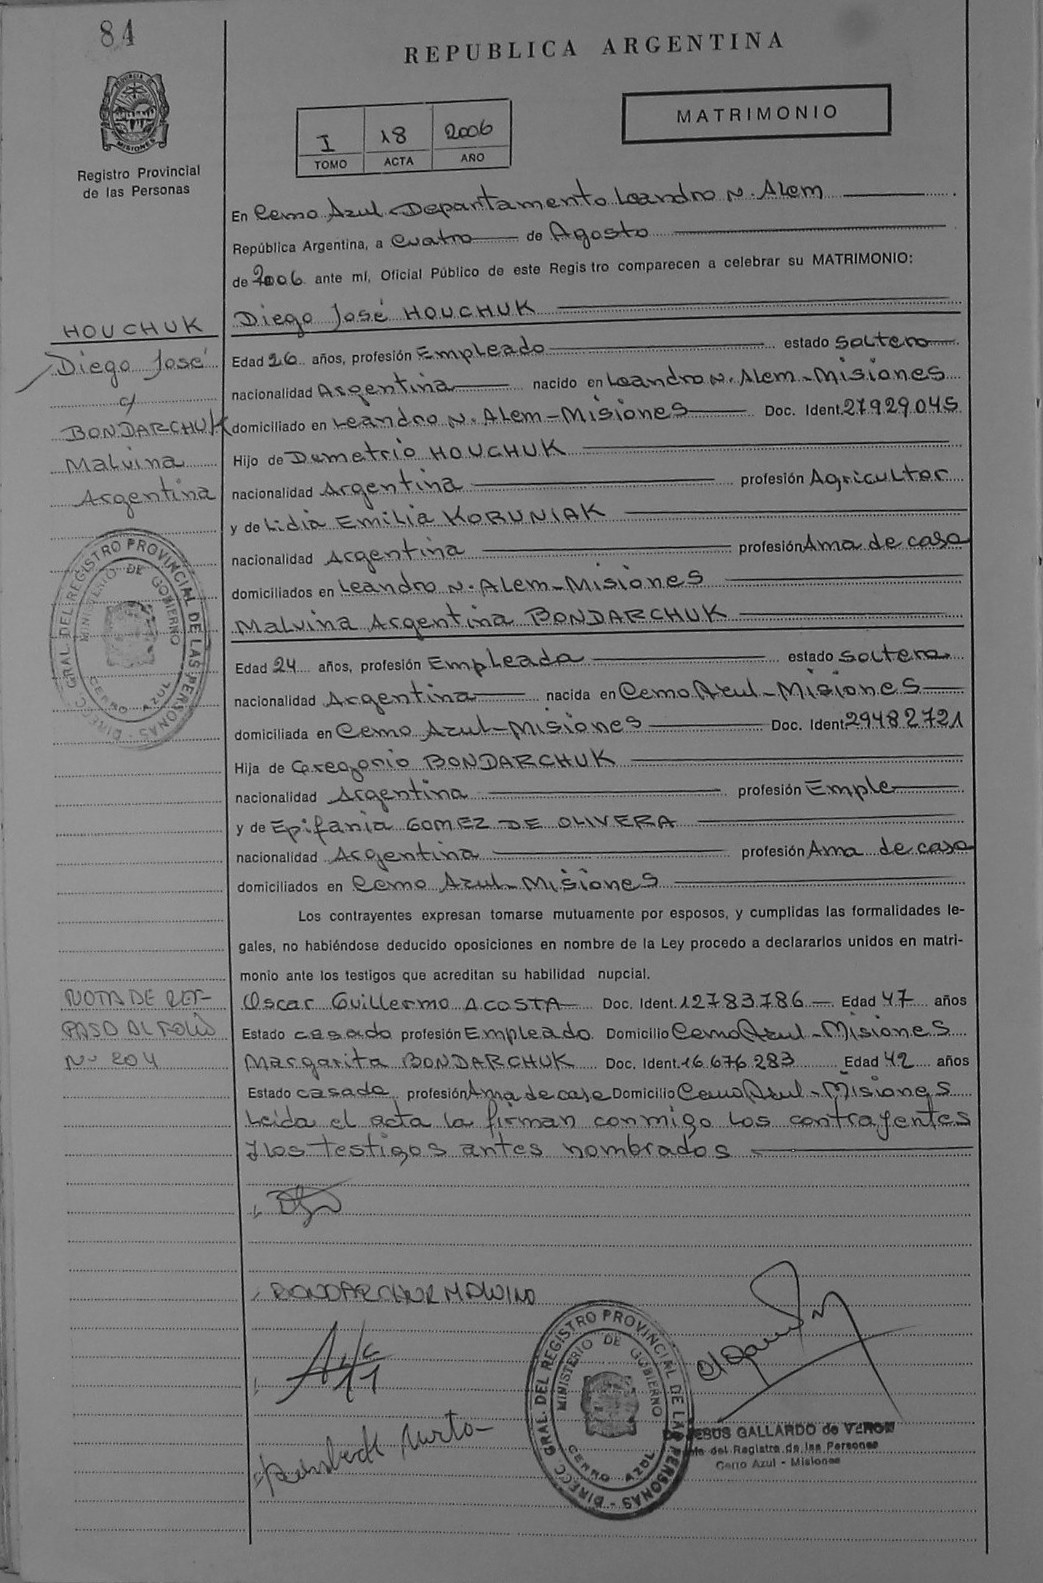 84
REPUBLICA ARGENTINA
PROVINCIA DE MISIONES
Registro Provincial
de las Personas
I 18 2006
TOMO ACTA AÑO
MATRIMONIO
En Cerro Azul-Departamento Leandro N. Alem
República Argentina, a Cuatro de Agosto
de 2006 ante mí, Oficial Público de este Registro comparecen a celebrar su MATRIMONIO:
Diego José HOUCHUK
HOUCHUK
Diego José
c/
BONDARCHUK
Malvina
Argentina
Edad 26 años, profesión Empleado estado Soltero
nacionalidad Argentina nacido en Leandro N. Alem-Misiones
domiciliado en Leandro N. Alem-Misiones Doc. Ident. 27929045
Hijo de Demetrio HOUCHUK
nacionalidad Argentina profesión Agricultor
y de Lidia Emilia KORUNIAK
nacionalidad Argentina profesión Ama de casa
domiciliados en Leandro N. Alem-Misiones
Malvina Argentina BONDARCHUK
Edad 24 años, profesión Empleada estado Soltera
nacionalidad Argentina nacida en Cerro Azul-Misiones
domiciliada en Cerro Azul-Misiones Doc. Ident. 29482721
Hija de Gregorio BONDARCHUK
nacionalidad Argentina profesión Emple
y de Epifania GOMEZ DE OLIVERA
nacionalidad Argentina profesión Ama de casa
domiciliados en Cerro Azul-Misiones
DIRECC. GRAL. DEL REGISTRO PROVINCIAL DE LAS PERSONAS
MINISTERIO DE GOBIERNO
CERRO AZUL
Los contrayentes expresan tomarse mutuamente por esposos, y cumplidas las formalidades le-
gales, no habiéndose deducido oposiciones en nombre de la Ley procedo a declararlos unidos en matri-
monio ante los testigos que acreditan su habilidad nupcial.
Oscar Guillermo ACOSTA Doc. Ident. 12783786 Edad 47 años
Estado casado profesión Empleado Domicilio Cerro Azul-Misiones
Margarita BONDARCHUK Doc. Ident. 16.676.283 Edad 42 años
Estado casada profesión Ama de casa Domicilio Cerro Azul-Misiones
Leida el acta la firman conmigo los contrayentes
y los testigos antes nombrados
NOTA DE REF-
PASO AL FOLIO
Nº 204
BONDARCHUK MALVINA
DIRECC. GRAL. DEL REGISTRO PROVINCIAL DE LAS PERSONAS
MINISTERIO DE GOBIERNO
CERRO AZUL
JESUS GALLARDO de VERON
del Registro de las Personas
Cerro Azul - Misiones